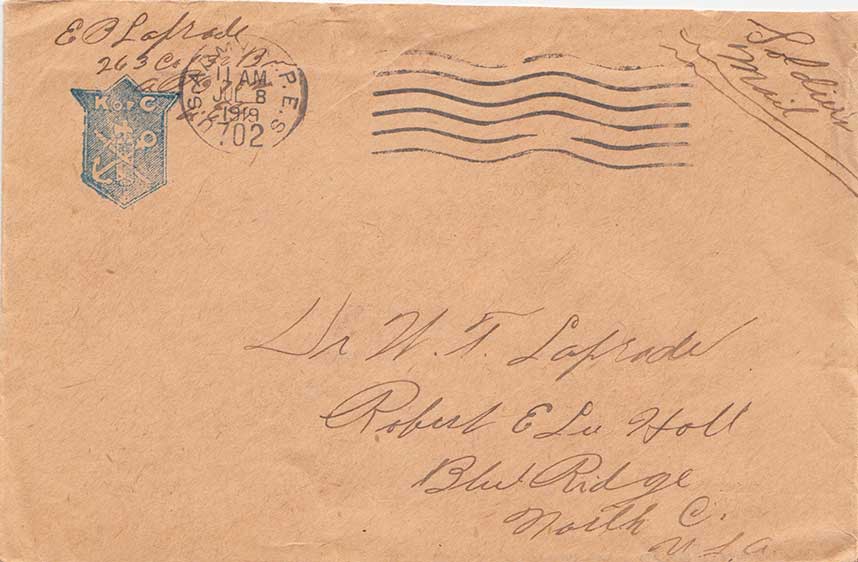 E P Laprade
263 Co
K of C
U.S. ARMY M.P.E.S.
11 AM
JUL 8
1919
702
Soldiers
Mail
Dr W. T. Laprade
Robert E Lee Hall
Blue Ridge
North C.
U S A